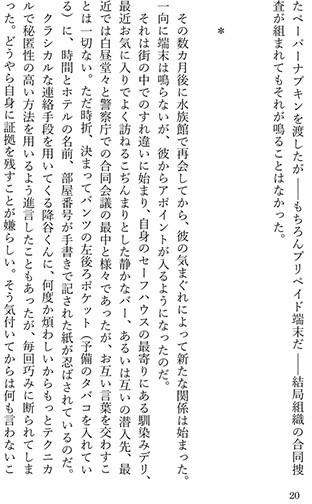 たペーパーナプキンを渡したが――もちろんプリペイド端末だ――結局組織の合同捜
査が組まれてもそれが鳴ることはなかった。
*
その数カ月後に水族館で再会してから、彼の気まぐれによって新たな関係は始まった。
一向に端末は鳴らないが、彼からアポイントが入るようになったのだ。
それは街の中でのすれ違いに始まり、自身のセーフハウスの最寄りにある馴染みデリ、
最近お気に入りでよく訪ねるこぢんまりとした静かなバー、あるいは互いの潜入先、最
近では白昼堂々と警察庁での合同会議の最中と様々であったが、お互い言葉を交わすこ
とは一切ない。ただ時折、決まってパンツの左後ろポケット（予備のタバコを入れてい
る）に、時間とホテルの名前、部屋番号が手書きで記された紙が忍ばされているのだ。
クラシカルな連絡手段を用いてくる降谷くんに、何度か煩わしいからもっとテクニカ
ルで秘匿性の高い方法を用いるよう進言したこともあったが、毎回巧みに断られてしま
った。どうやら自身に証拠を残すことが嫌らしい。そう気付いてからは何も言わないこ
20